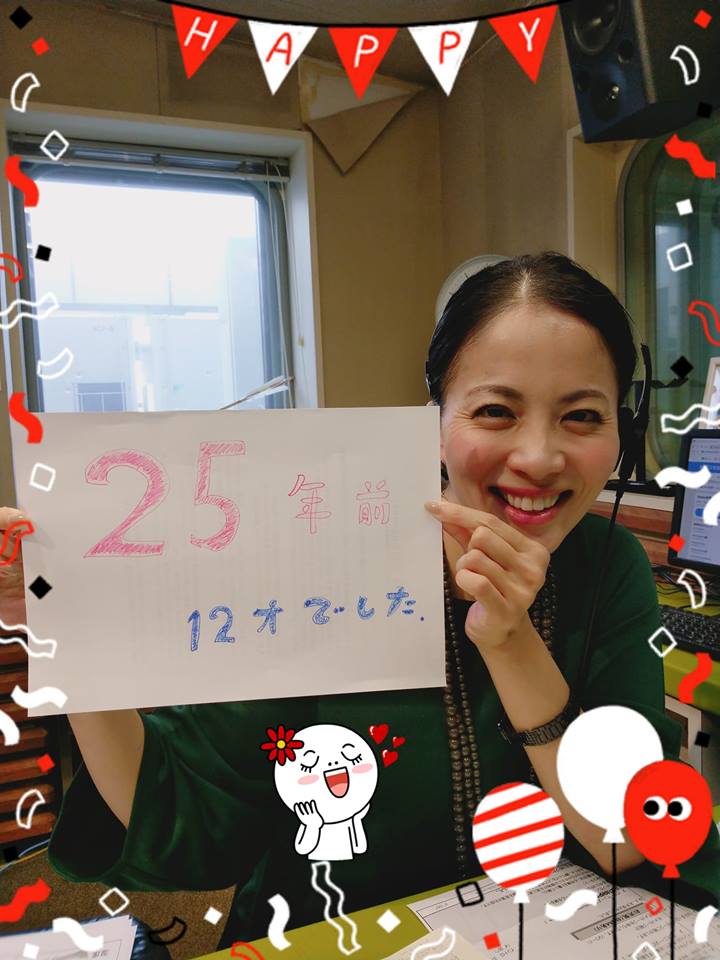 HAPPY
25年前
12才でした.